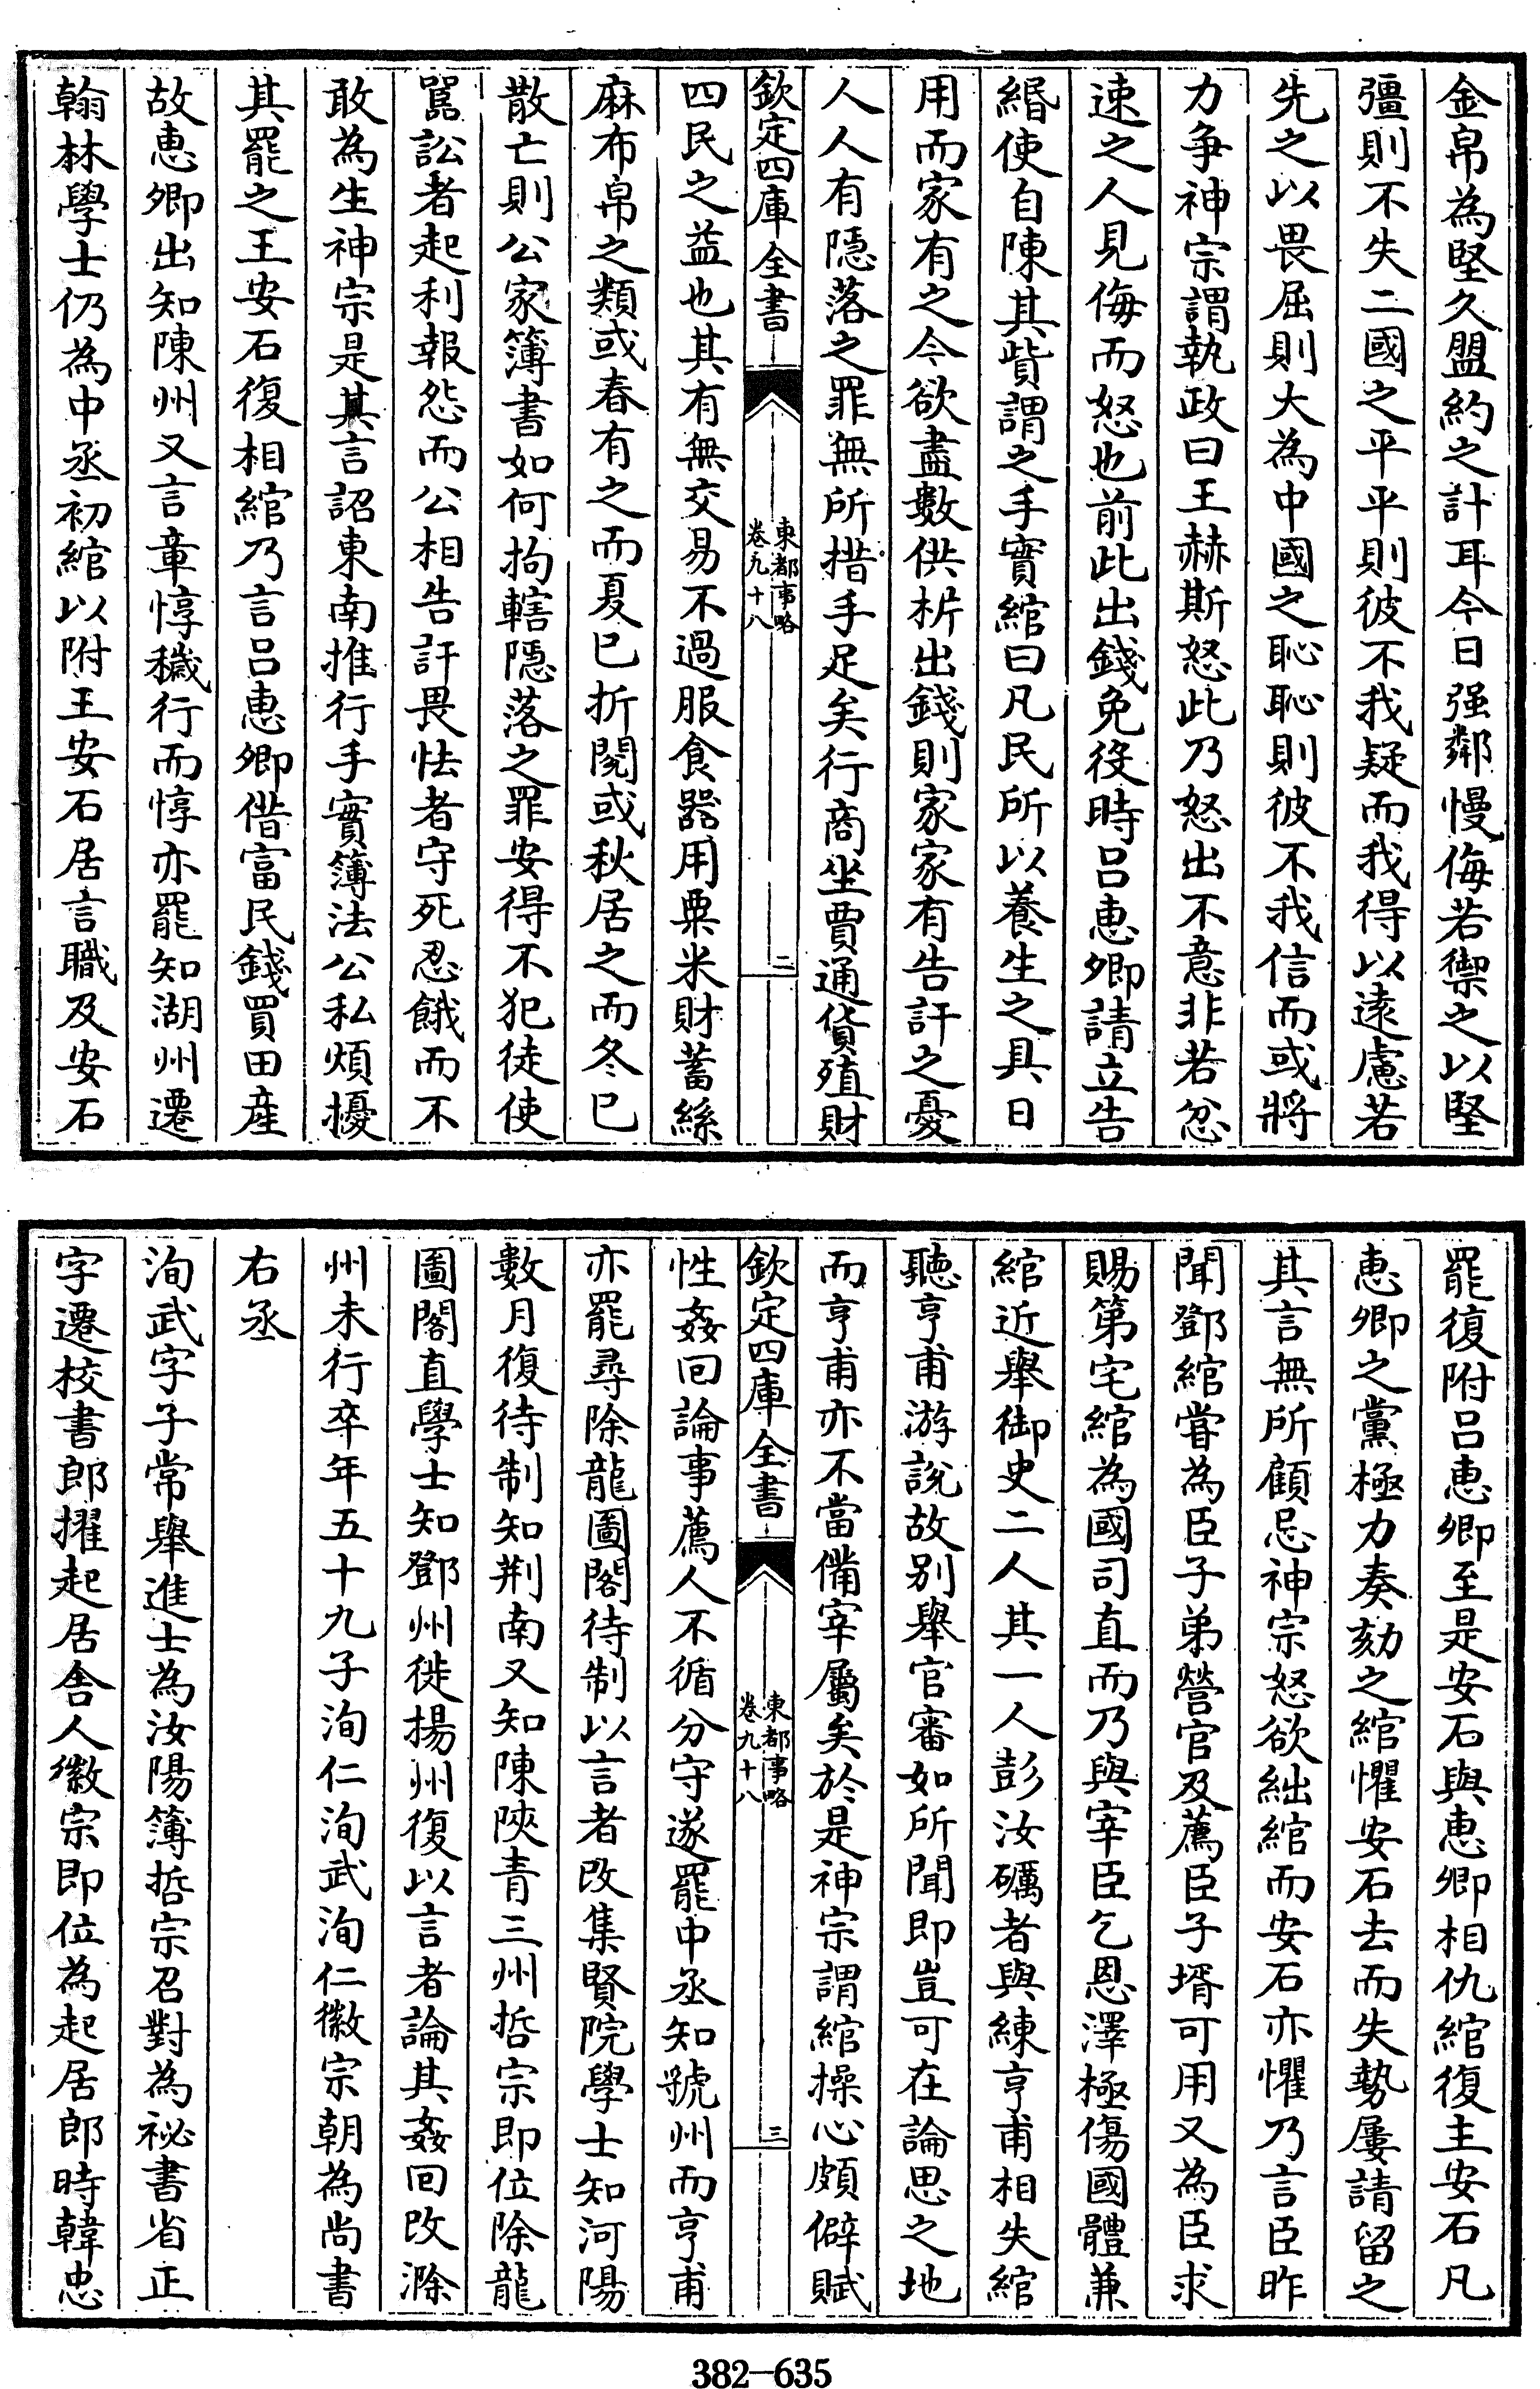 金帛為堅久盟約之計耳今日强鄰慢侮若禦之以堅
彊則不失二國之平平則彼不我疑而我得以遠慮若
先之以畏屈則大為中國之恥恥則彼不我信而或將
力爭神宗謂執政曰王赫斯怒此乃怒出不意非若忿
速之人見侮而怒也前此出錢免役時吕惠卿請立告
緡使自陳其貲謂之手實綰曰凡民所以養生之具日
用而家有之今欲盡數供析出錢則家家有告訐之憂
人人有隱落之罪無所措手足矣行商坐賈通貨殖財
欽定四庫全書
東都事略
卷九十八
二
四民之益也其有無交易不過服食器用粟米財蓄絲
麻布帛之類或春有之而夏已折閱或秋居之而冬已
散亡則公家簿書如何拘轄隱落之罪安得不犯徒使
嚚訟者起利報怨而公相告訐畏怯者守死忍餓而不
敢為生神宗是其言詔東南推行手實簿法公私煩擾
其罷之王安石復相綰乃言吕惠卿借富民錢買田産
故惠卿出知陳州又言章惇穢行而惇亦罷知湖州遷
翰林學士仍為中丞初綰以附王安石居言職及安石
罷復附吕惠卿至是安石與惠卿相仇綰復主安石凡
惠卿之黨極力奏劾之綰懼安石去而失勢屢請留之
其言無所顧忌神宗怒欲絀綰而安石亦懼乃言臣昨
聞鄧綰甞為臣子弟營官及薦臣子壻可用又為臣求
賜第宅綰為國司直而乃與宰臣乞恩澤極傷國體兼
綰近舉御史二人其一人彭汝礪者與練亨甫相失綰
聽亨甫游説故别舉官審如所聞即豈可在論思之地
而亨甫亦不當備宰屬矣於是神宗謂綰操心頗僻賦
欽定四庫全書
東都事略
卷九十八
三
性姦回論事薦人不循分守遂罷中丞知虢州而亨甫
亦罷尋除龍圖閣待制以言者改集賢院學士知河陽
數月復待制知荆南又知陳陝青三州哲宗即位除龍
圖閣直學士知鄧州徙揚州復以言者論其姦回改滁
州未行卒年五十九子洵仁洵武洵仁徽宗朝為尚書
右丞
洵武字子常舉進士為汝陽簿哲宗召對為祕書省正
字遷校書郎擢起居舍人徽宗即位為起居郎時韓忠
382—635